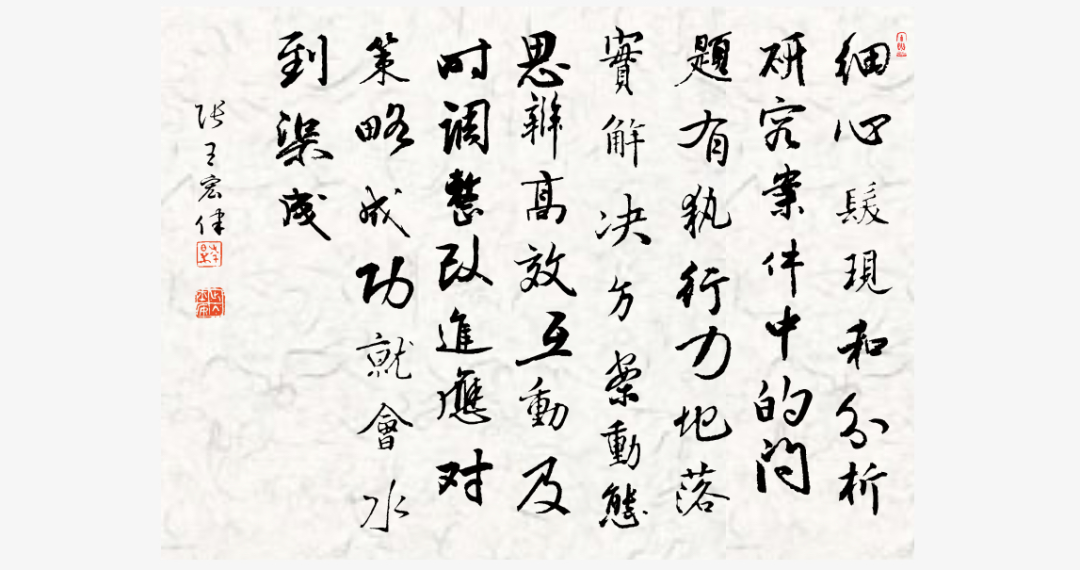 细心髮現和分析
研究案件中的问
題有执行力地落
實解决方案動態
思辨高效互動及
时调整改進應对
策略成功就會水
到渠成
张王宏律